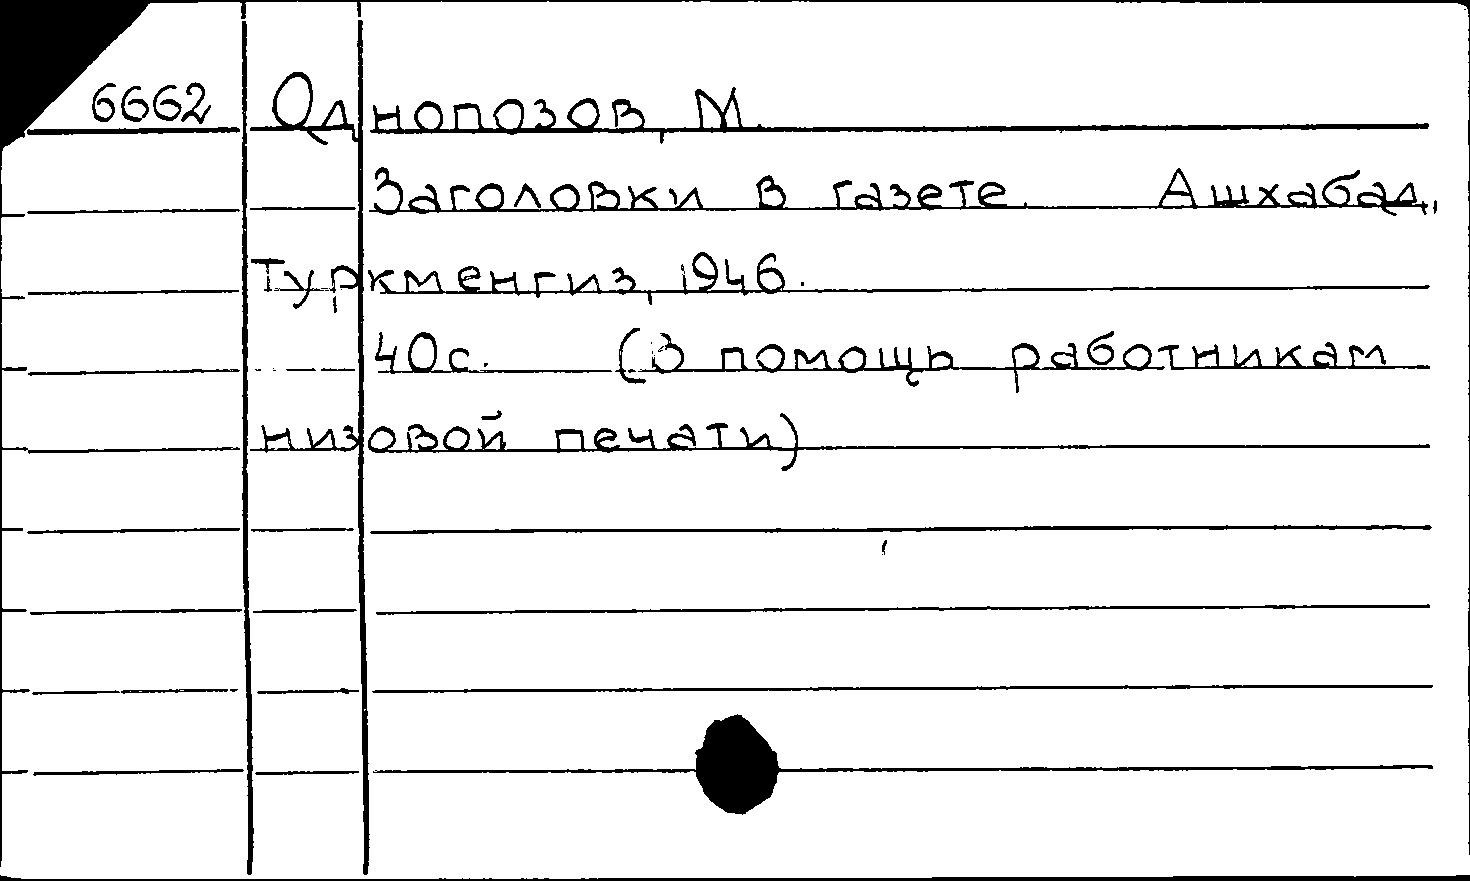 6662 Однопозов, М.
Заголовки в газете. Ашхабад,
Туркменгиз, 1946.
40с. (В помощь работникам
низовой печати)